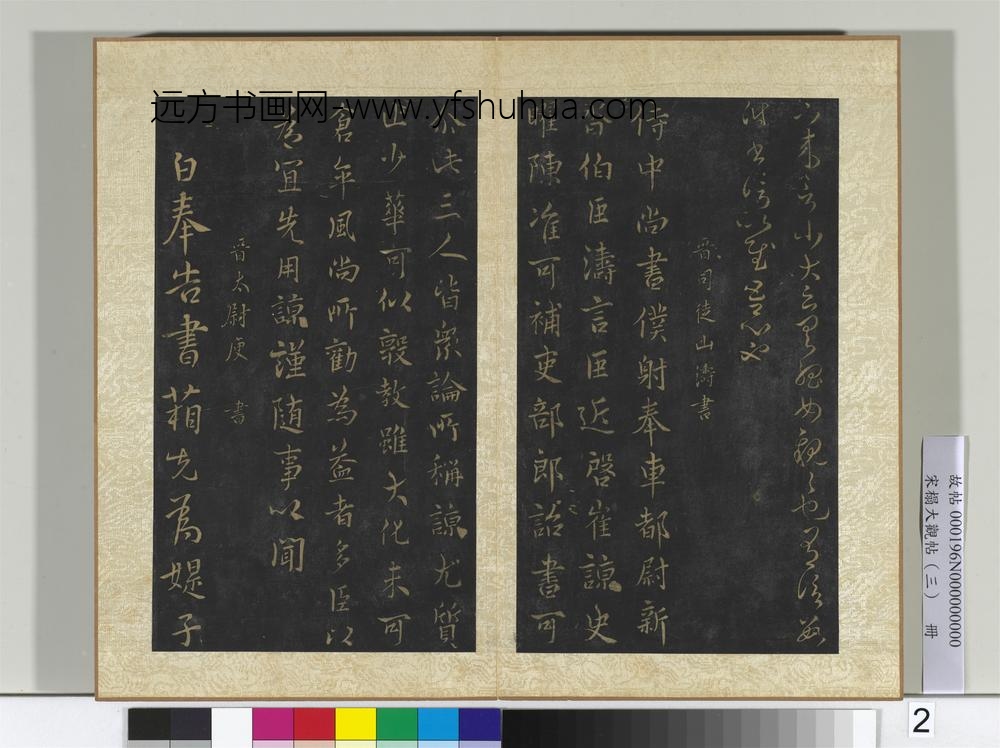 远方书画网-www.yfshuhua.com
晉司徒山濤書
侍中尚書僕射奉車都尉新
沓伯臣濤言臣近啓崔諒史
曜陳准可補吏部郎詔書可
尒此三人皆衆論所稱諒尤質
正少華可以敦教雖大化未可
倉卒風尚所勸為益者多臣以
為宜先用諒謹随事以聞
晉太尉庾 書
白奉告書箱先為媞子
故帖 000196N000000000
宋榻大觀帖(三) 冊
2